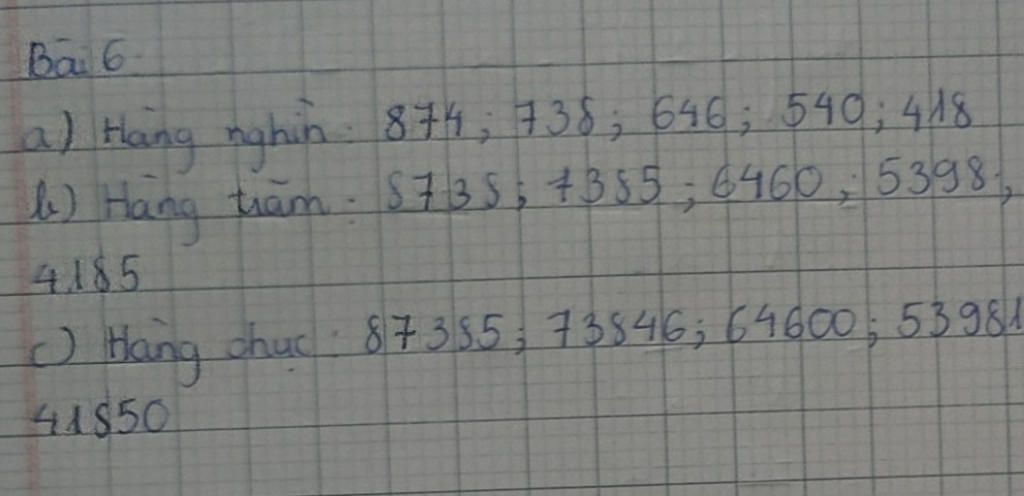 Bài 6
a) Hàng nghìn: 874; 738; 646; 540; 418
b) Hàng trăm: 8738; 7385; 6460; 5398;
4185
c) Hàng chục: 87385; 73846; 64600; 53981
41850